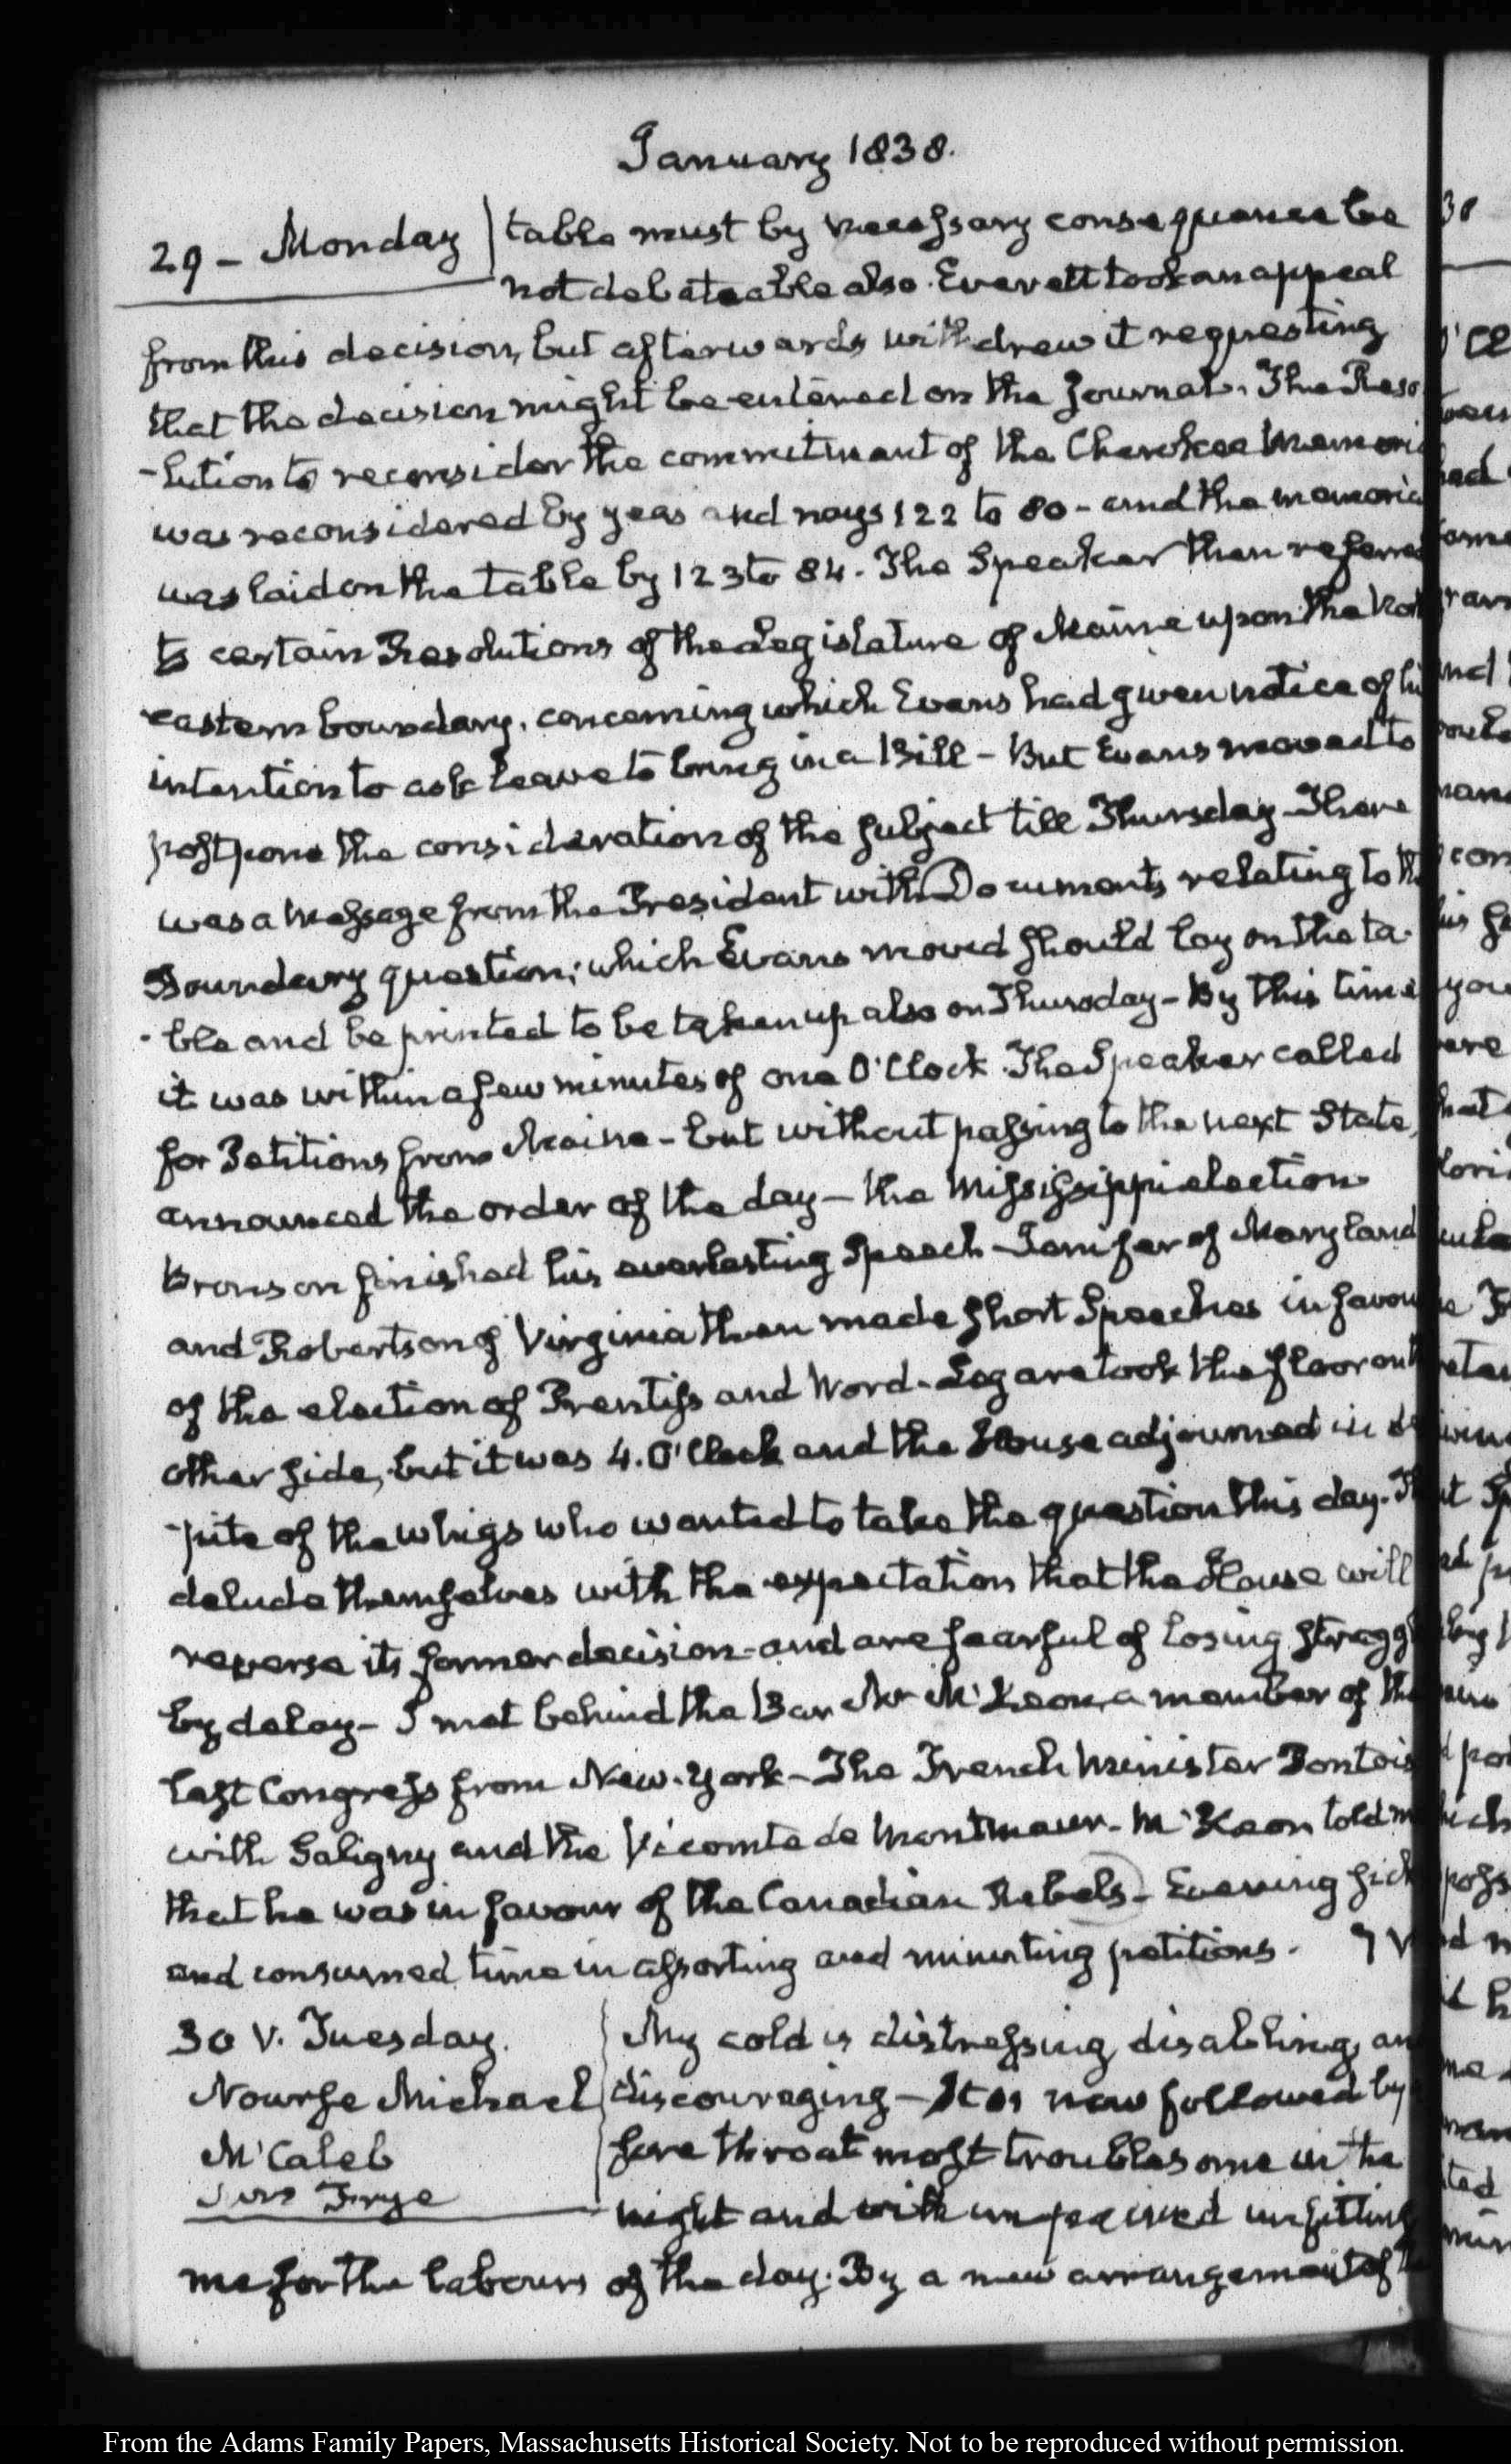 January 1838.
29 - Monday
table must by necessary consequence be
not debateable also. Everett took an appeal
from this decision, but afterwards withdrew it requesting
that the decision might be entered on the Journal. The Reso
-lution to reconsider the commitment of the Cherokee Memori
was reconsidered by yeas and nays 122 to 80 - and the memoria
was laid on the table by 123 to 84. The Speaker then referred
to certain Resolutions of the Legislature of Maine upon the Nor
eastern boundary, concerning which Evans had given notice of hi
intention to ask leave to bring in a Bill - But Evans moved to
postpone the consideration of the subject till Thursday - There
was a Message from the President with Documents relating to th
Boundary question; which Evans moved should lay on the ta-
-ble and be printed to be taken up also on Thursday - By this time
it was within a few minutes of one O'Clock. The Speaker called
for Petitions from Maine - but without passing to the next State,
announced the order of the day - the Mississippi election
Bronson finished his everlasting Speech - Jenifer of Maryland
and Robertson of Virginia then made short Speeches in favour
of the election of Prentiss and Word - Legare took the floor on t
other side, but it was 4. O'Clock and the House adjourned in de
-pite of the whigs who wanted to take the question this day. Th
delude themselves with the expectation that the House will
reverse its former decision - and are fearful of losing stragg
by delay - I met behind the Bar Mr. McKeon, a member of the
last Congress from New-York - The French Minister Pontois
with Saligny and the Vicomte de Montmaur - McKeon told m
that he was in favour of the Canadian Rebels - Evening sick
and consumed time in assorting and minuting petitions.
30 V. Tuesday.
Nourse Michael
McCaleb
Frye
My cold is distressing, disabling, an
discouraging - It is now followed by
sore throat most troublesome in the
night and with unfitting
me for the labours of the day. By a new arrangement of
From the Adams Family Papers, Massachusetts Historical Society. Not to be reproduced without permission.